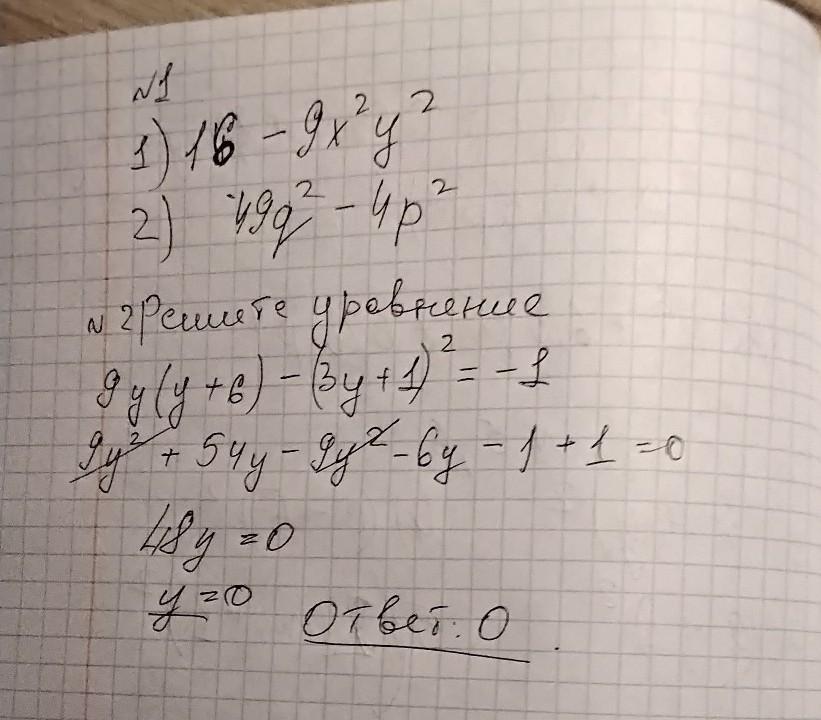 №1
1) 16 - 9x²y²
2) 49q² - 4p²
№2 Решите уравнение
9y(y+6) - (3y+1)² = -1
9y² + 54y - 9y² - 6y - 1 + 1 = 0
48y = 0
y = 0
Ответ: 0.